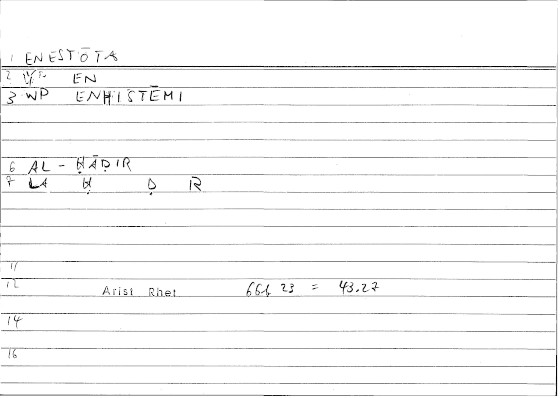 1 ENESTŌTA
2 WP EN
3 WP ENHISTĒMI
6 AL - ḤĀḌIR
7 LA Ḥ Ḍ R
11
12 Arist Rhet 23 = 43.27
14
16